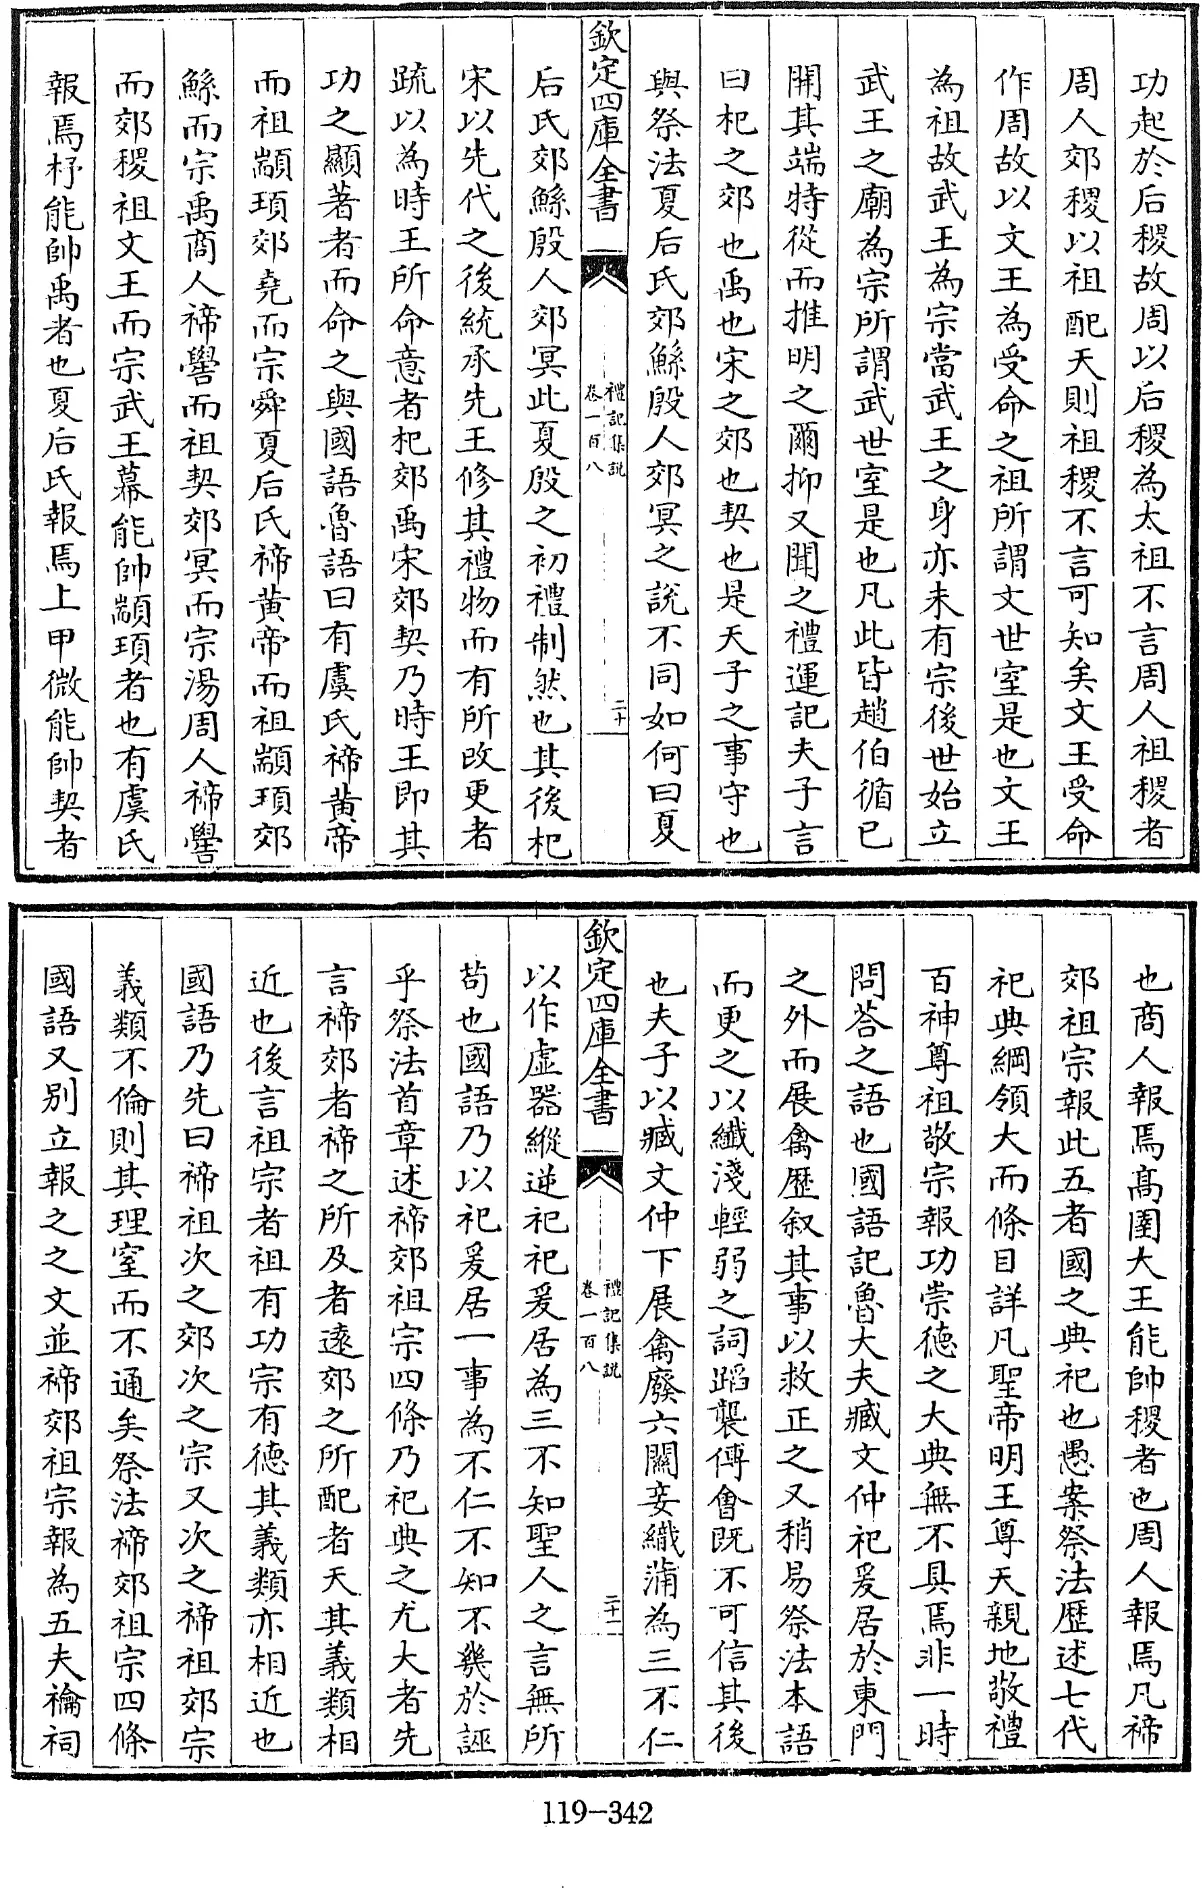 功起於后稷故周以后稷為太祖不言周人祖稷者
周人郊稷以祖配天則祖稷不言可知矣文王受命
作周故以文王為受命之祖所謂文世室是也文王
為祖故武王為宗當武王之身亦未有宗後世始立
武王之廟為宗所謂武世室是也凡此皆趙伯循已
開其端特從而推明之爾抑又聞之禮運記夫子言
曰杞之郊也禹也宋之郊也契也是天子之事守也
與祭法夏后氏郊鯀殷人郊冥之說不同如何曰夏
欽定四庫全書
禮記集說
卷一百八
二十
后氏郊鯀殷人郊冥此夏殷之初禮制然也其後杞
宋以先代之後統承先王修其禮物而有所改更者
疏以為時王所命意者杞郊禹宋郊契乃時王即其
功之顯著者而命之與國語魯語曰有虞氏禘黃帝
而祖顓頊郊堯而宗舜夏后氏禘黃帝而祖顓頊郊
鯀而宗禹商人禘嚳而祖契郊冥而宗湯周人禘嚳
而郊稷祖文王而宗武王幕能帥顓頊者也有虞氏
報焉杼能帥禹者也夏后氏報焉上甲微能帥契者
也商人報焉髙圉大王能帥稷者也周人報焉凡禘
郊祖宗報此五者國之典祀也愚案祭法歷述七代
祀典綱領大而條目詳凡聖帝明王尊天親地敬禮
百神尊祖敬宗報功崇德之大典無不具焉非一時
問荅之語也國語記魯大夫臧文仲祀爰居於東門
之外而展禽歷叙其事以救正之又稍易祭法本語
而更之以纖淺輕弱之詞蹈襲傅會既不可信其後
也夫子以臧文仲下展禽廢六關妾織蒲為三不仁
欽定四庫全書
禮記集說
卷一百八
二十一
以作虛器縱逆祀祀爰居為三不知聖人之言無所
苟也國語乃以祀爰居一事為不仁不知不幾於誣
乎祭法首章述禘郊祖宗四條乃祀典之尤大者先
言禘郊者禘之所及者遠郊之所配者天其義類相
近也後言祖宗者祖有功宗有德其義類亦相近也
國語乃先曰禘祖次之郊次之宗又次之禘祖郊宗
義類不倫則其理室而不通矣祭法禘郊祖宗四條
國語又別立報之之文並禘郊祖宗報為五夫禴祠
119-342